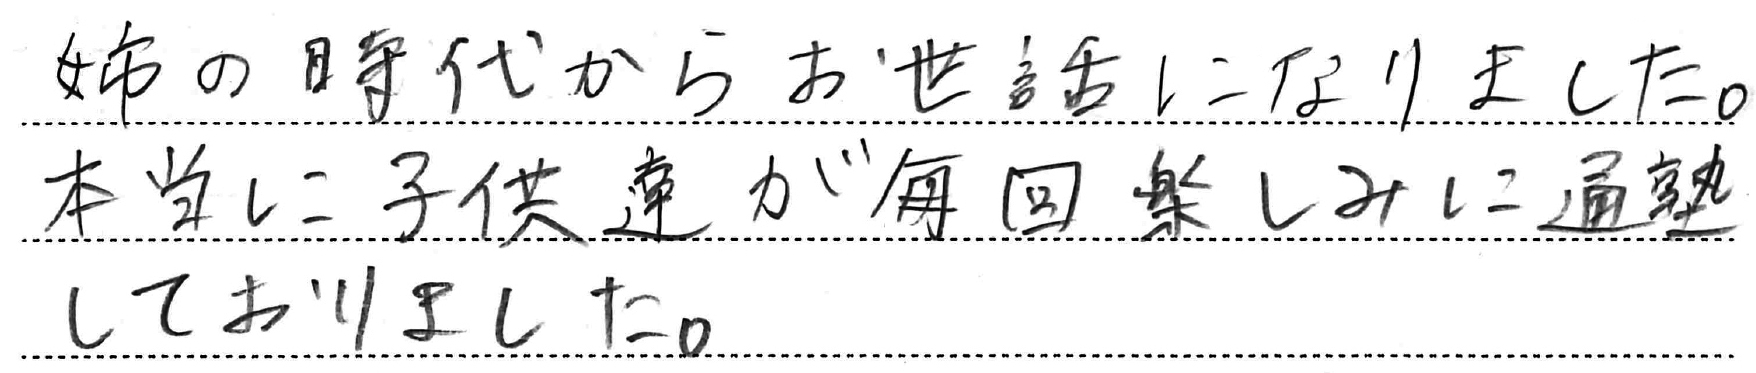 姉の時代からお世話になりました。
本当に子供達が毎回楽しみに通塾
しておりました。